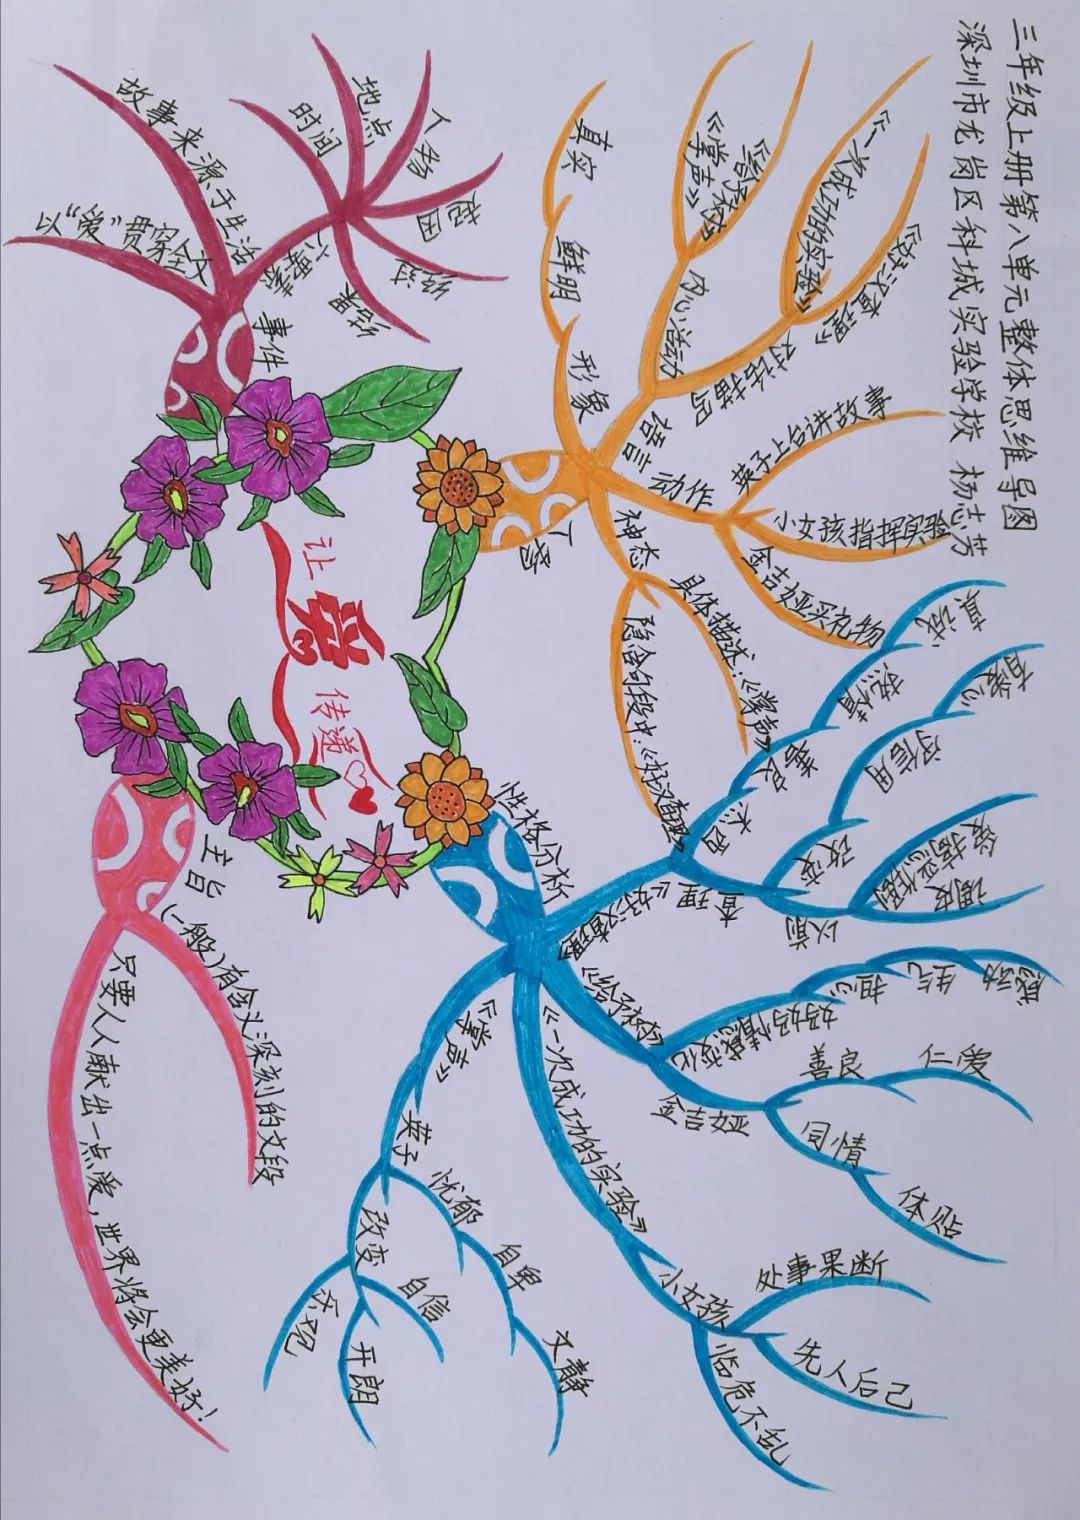 三年级上册第八单元整体思维导图
深圳市龙岗区科城实验学校 杨志芳
让爱传递
事件
以“爱”贯穿全文
故事来源于生活
六要素
时间
地点
人物
起因
经过
结果
人物
形象
鲜明
真实
语言
内心活动
《掌声》
《给予树》
对话描写
《一次成功的实验》
《好汉查理》
动作
英子上台讲故事
小女孩指挥实验
金吉娅买礼物
神态
具体描述:《掌声》
隐含句段中:《好汉查理》
性格分析
《好汉查理》
杰西
善良
执着
真诚
查理
改变
守信用
有爱心
以前
调皮
爱搞恶作剧
《给予树》
妈妈情感变化
担心
生气
感动
金吉娅
善良
仁爱
同情
体贴
《一次成功的实验》
小女孩
处事果断
先人后己
临危不乱
《掌声》
英子
忧郁
自卑
文静
改变
自信
开朗
乐观
主旨
(一般)有含义深刻的文段
只要人人献出一点爱，世界将会更美好！